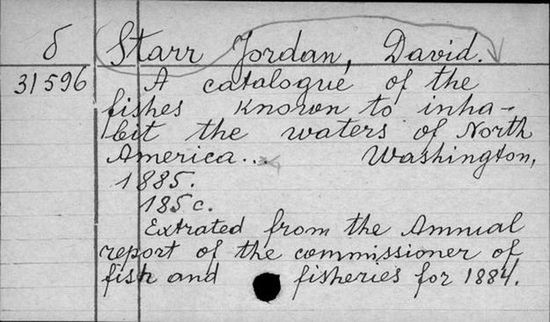 б Starr Jordan, David.
31596 A catalogue of the
fishes known to inha-
bit the waters of North
America... Washington,
1885.
185 c.
Extrated from the Annual
report of the commissioner of
fish and fisheries for 1884.